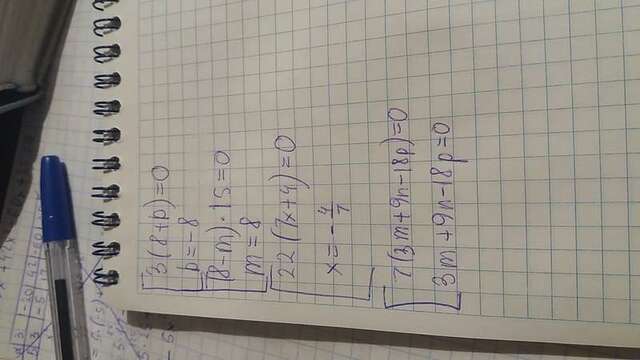 3(8+b)=0
b=-8
(8-m)·15=0
m=8
22(7x+4)=0
x=-4/7
7(3m+9n-18p)=0
3m+9n-18p=0